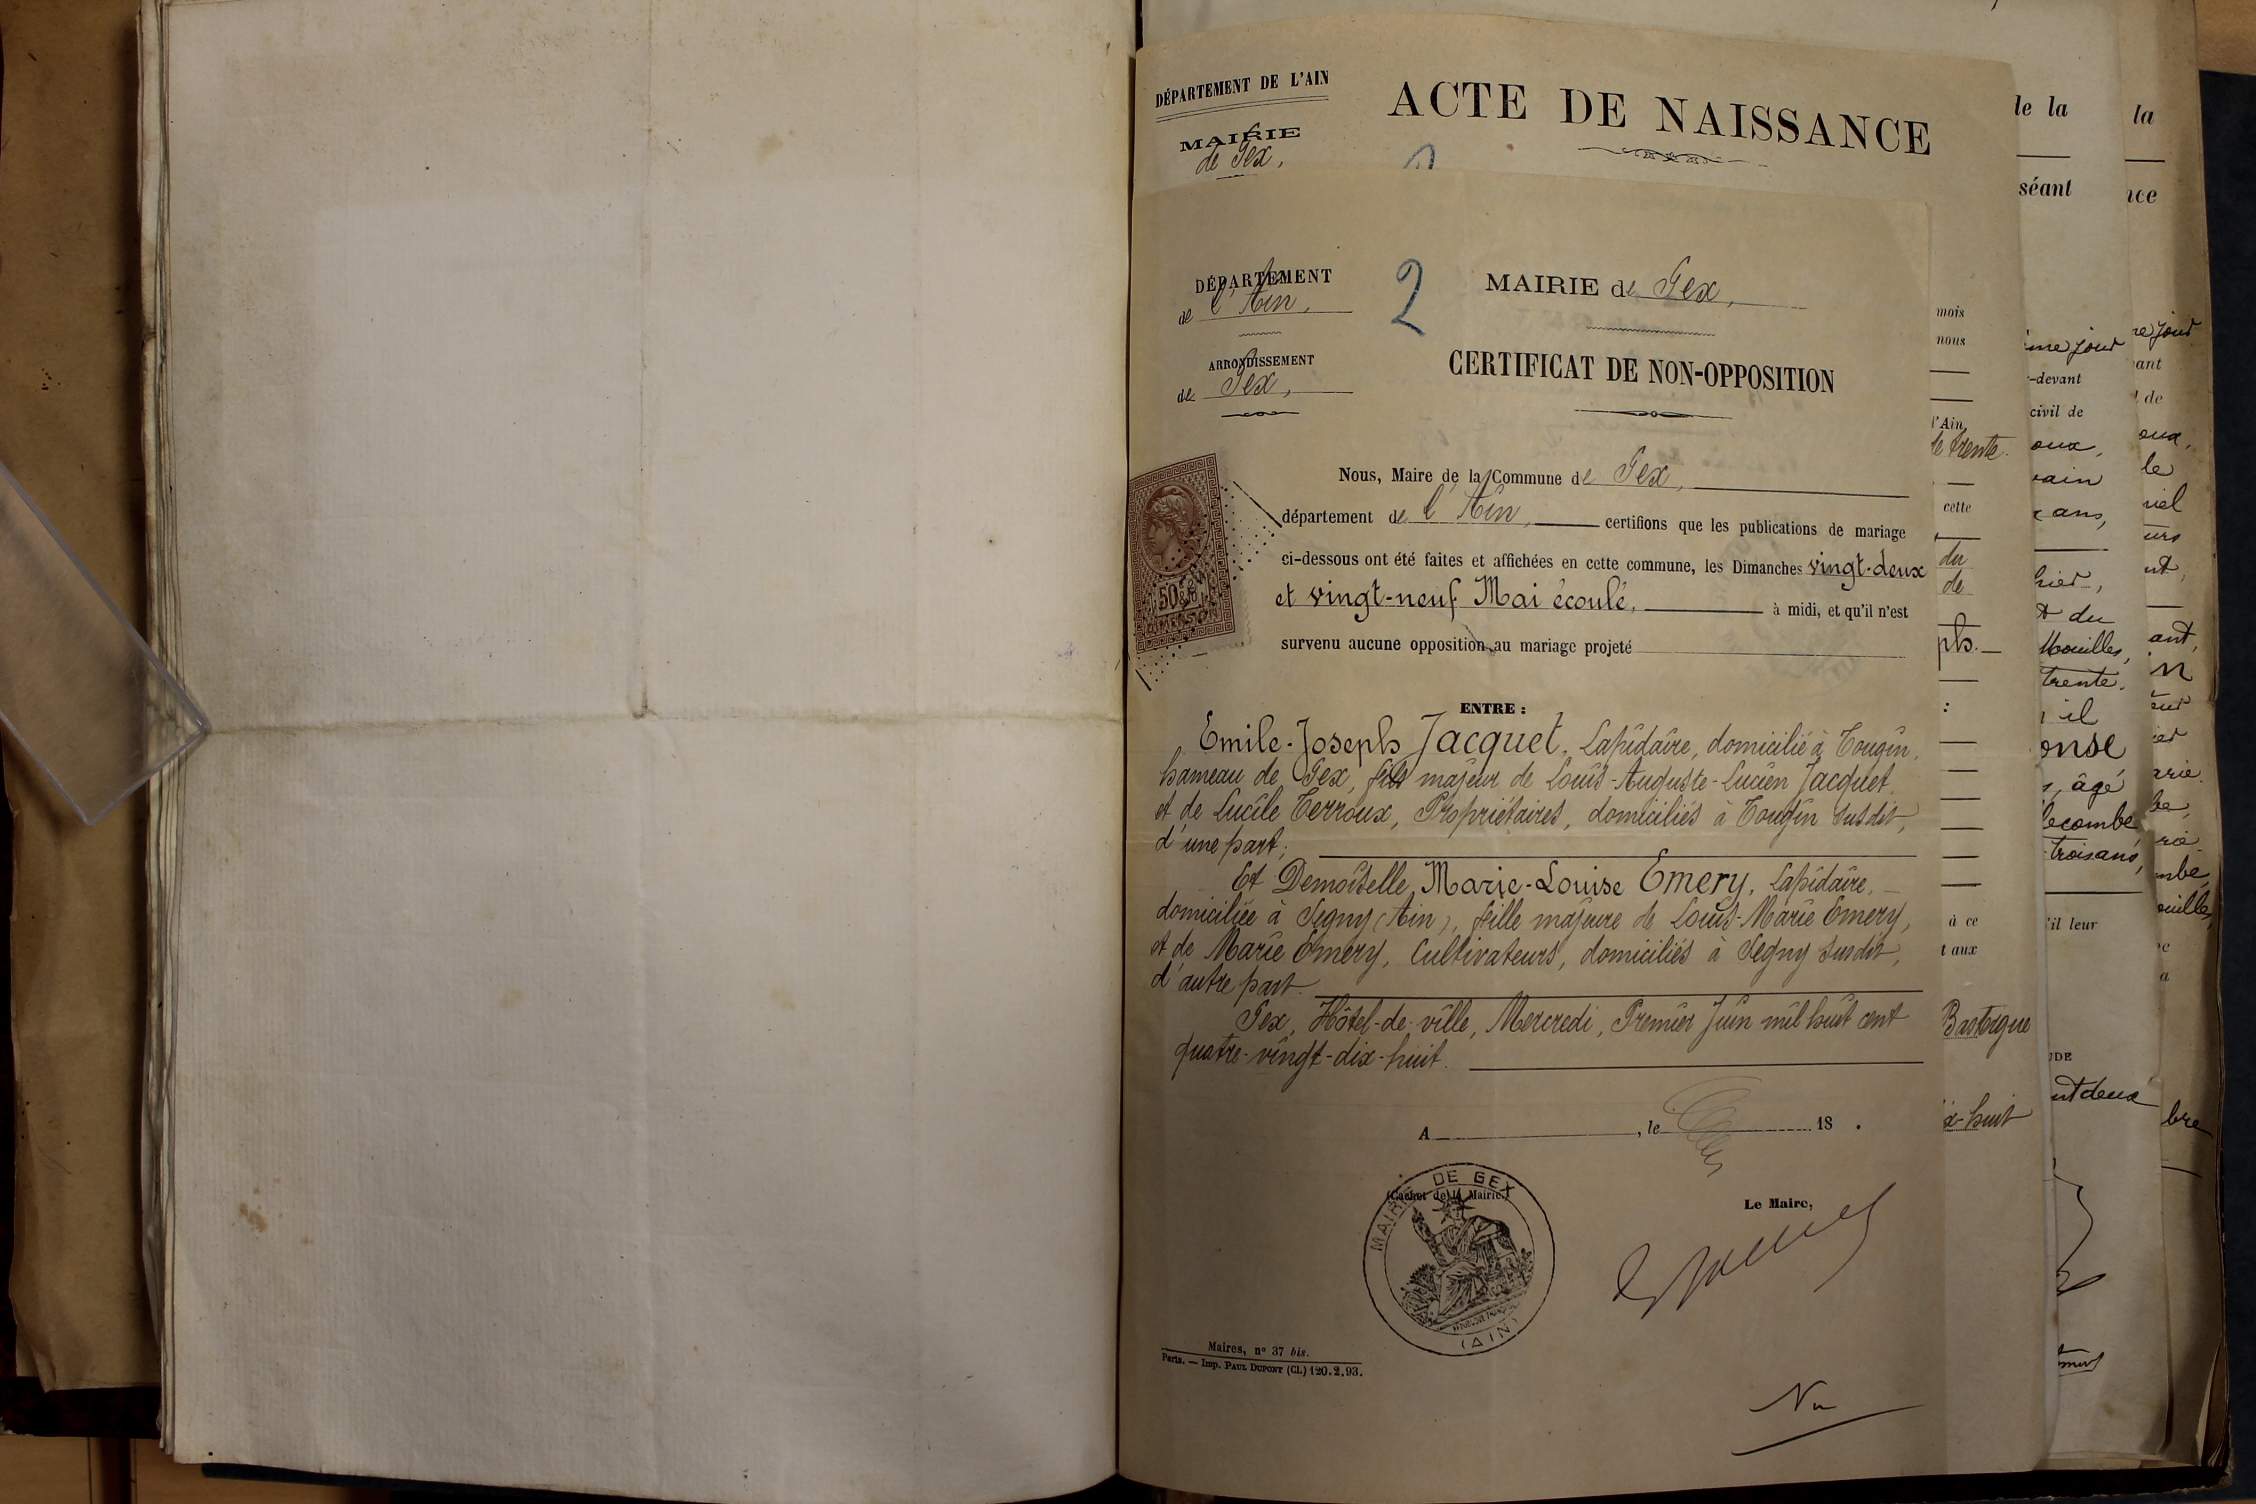 DÉPARTEMENT DE L'AIN
MAIRIE
de Gex,
ACTE DE NAISSANCE
DÉPARTEMENT
de l'Ain,
ARRONDISSEMENT
de Gex,
2
MAIRIE de Gex,
CERTIFICAT DE NON-OPPOSITION
Nous, Maire de la Commune de Gex,
département de l'Ain, certifions que les publications de mariage
ci-dessous ont été faites et affichées en cette commune, les Dimanches vingt-deux
et vingt-neuf Mai écoulé, à midi, et qu'il n'est
survenu aucune opposition au mariage projeté
ENTRE :
Emile-Joseph Jacquet, Lapidaire, domicilié à Tougin,
hameau de Gex, fils majeur de Louis-Auguste-Lucien Jacquet
et de Lucile Terroux, Propriétaires, domiciliés à Tougin susdit,
d'une part;
Et Demoiselle Marie-Louise Emery, Lapidaire,
domiciliée à Segny (Ain), fille majeure de Louis-Marie Emery,
et de Marie Emery, Cultivateurs, domiciliés à Segny susdit,
d'autre part.
Gex, Hôtel-de-ville, Mercredi, Premier Juin mil huit cent
quatre-vingt-dix-huit.
A , le 18 .
(Cachet de la Mairie.)
MAIRIE DE GEX
(AIN)
Le Maire,
Maires, n° 37 bis.
Paris. — Imp. PAUL DUPONT (CL.) 120.2.93.
Vu
le la
séant
mois
nous
l'Ain,
le trente.
cette
du
de
ph.
:
à ce
t aux
x-huit
-devant
civil de
oux,
ans,
t du
trente.
il
onse
âgé
troisans,
'il leur
la
nce
ant
de
oux,
le
ant,
bre